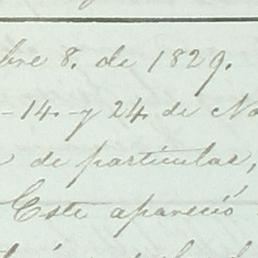 bre 8. de 1829.
-14.-y 24 de No
de particular,
Este apareció